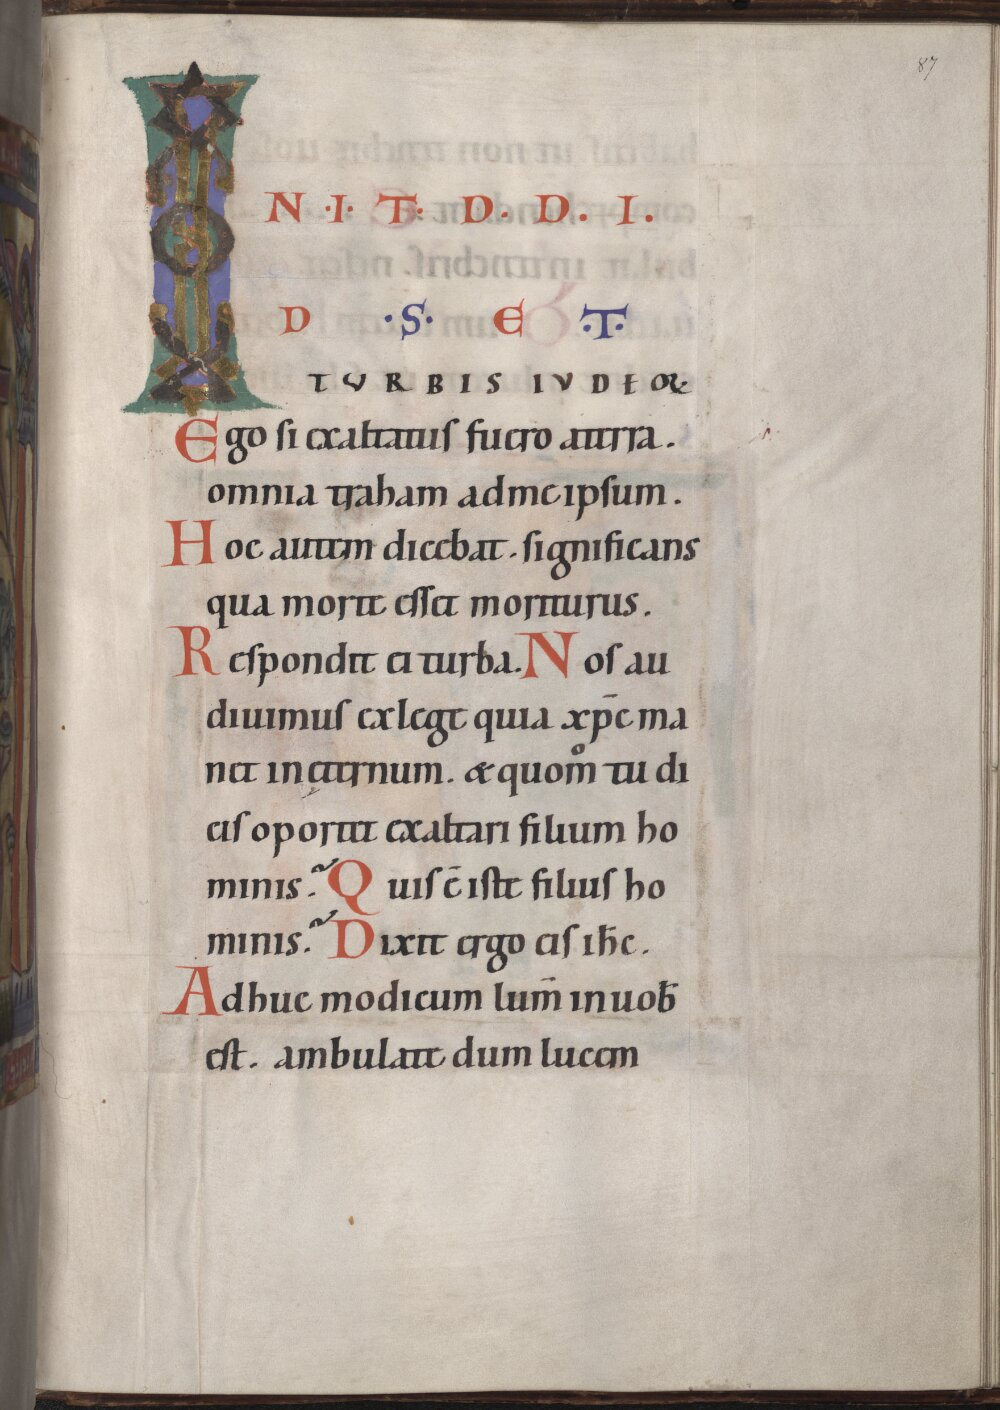 87
IN ·I· T· D· D· I·
D ·S· E ·T·
TURBIS IVDEOR
Ego si exaltatus fuero aterra.
omnia traham admeipsum.
Hoc autem dicebat. significans
qua morte esset moriturus.
Respondit ei turba. Nos au
diuimus exlege quia xp̄c ma
net inęternum. & quom̊ tu di
cis oportet exaltari filium ho
minis? Quis ē iste filius ho
minis? Dixit ergo eis ih̄c.
Adhuc modicum lum̄ inuob̄
est. ambulate dum lucem